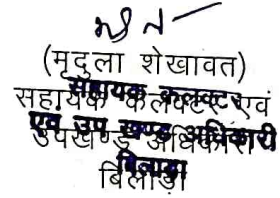 (मृदुला शेखावत)
सहायक कलक्टर एवं
उपखण्ड अधिकारी
बिलाड़ा
सहायक कलक्टर
एवं उप खण्ड अधिकारी
बिलाड़ा